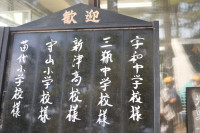 歓迎
宇和中学校様
三瓶中学校様
新津高校様
守山小学校様
田代小学校様